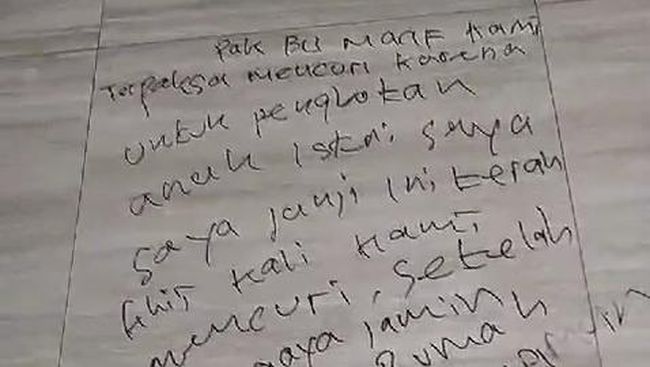 Pak Bu Maaf Kami
Terpaksa mencuri karena
untuk pengbotan
anak istri saya
saya janji ini terah
khir kali kami
mencuri, setelah
saya jamin
Rumah